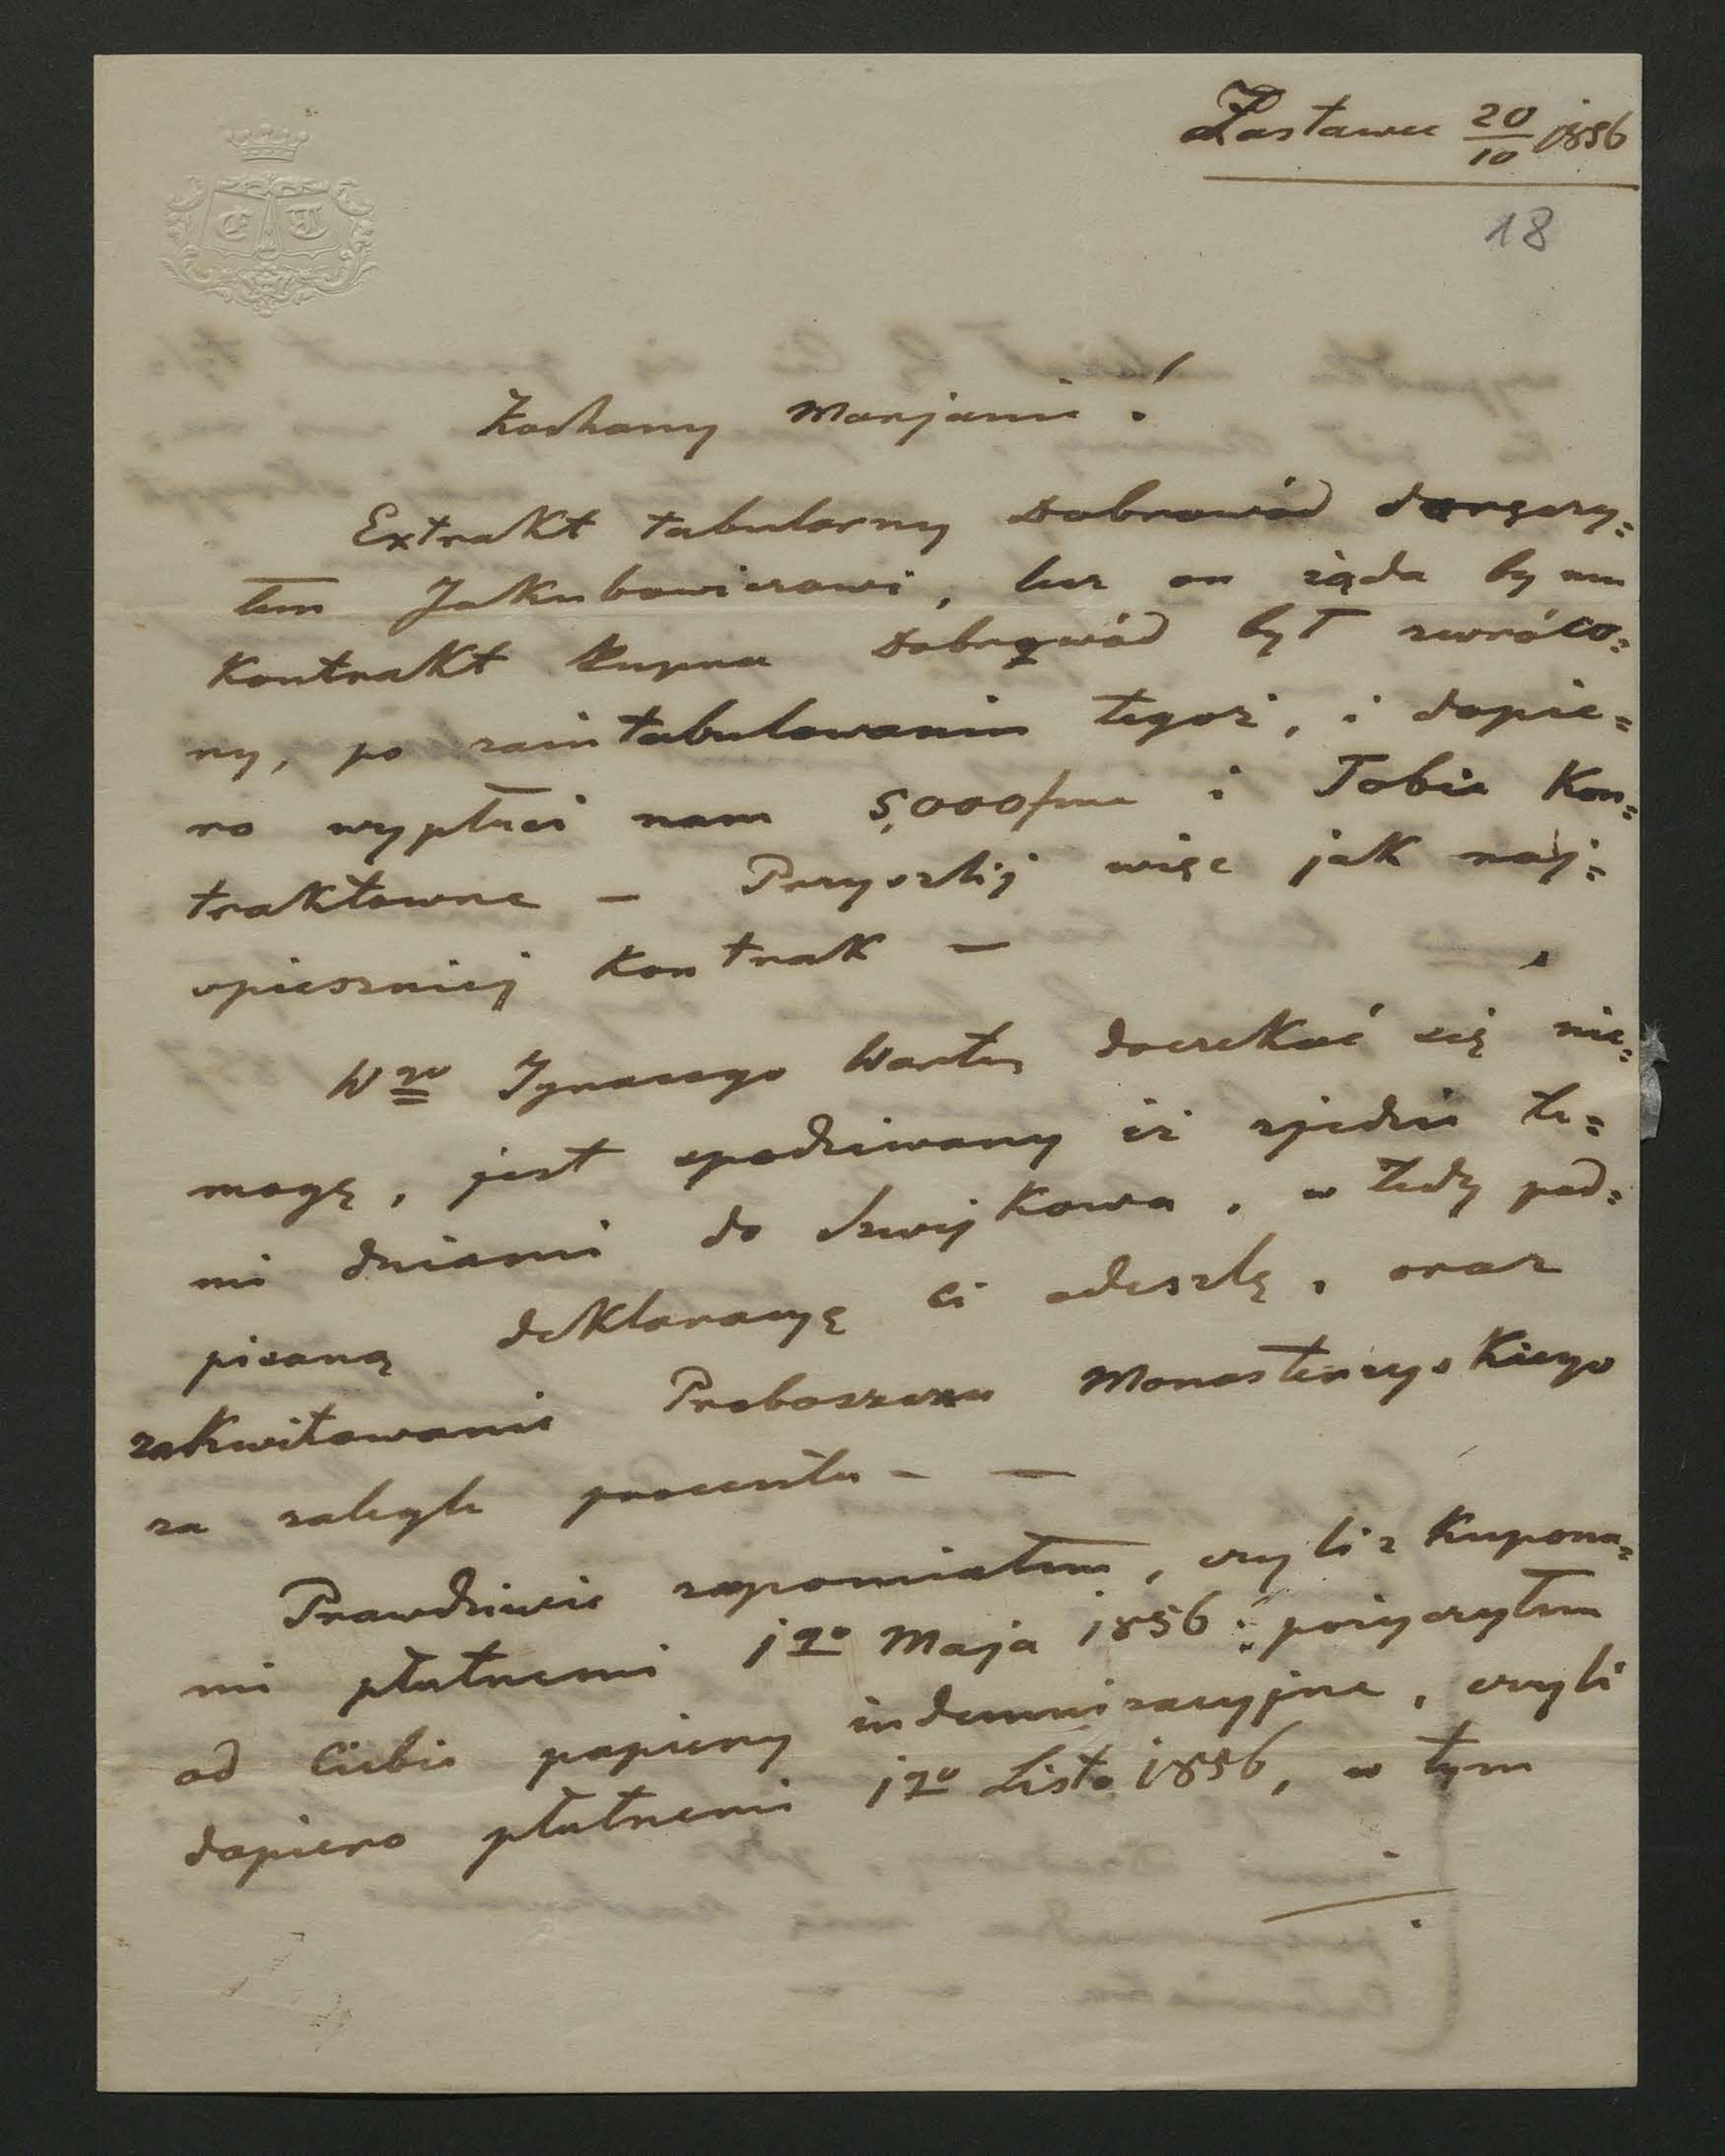 Zastawce 20/10 1856
18
Kochany Marjanie!
Extrakt tabularny Dobrowód doręczy=
łem Jakubowiczowi, lecz on żąda by mu
Kontrakt Kupna Dobrowód był zwróco=
ny, po zaintabulowaniu tegoż, i dopie=
ro wypłaci nam 5,000 i Tobie Kon=
traktowne — Przyszlij więc jak naj=
spieszniej Kontrak —
Wgo Ignacego doczekać się nie=
mogę, jest spodziewany iż zjedzie te=
mi dniami do , w tedy pod=
pisaną deklaracyę ci odeszlę, oraz
zakwitowanie Proboszcza Monasterzyskiego
za zaległe procenta — —
Prawdziwie zapomniałem, czyli z Kupona=
mi płatnemi 1go Maja 1856 pożyczyłem
od Ciebie papiery indemnizacyjne, czyli
dopiero płatnemi 1go Listo 1856, w tym